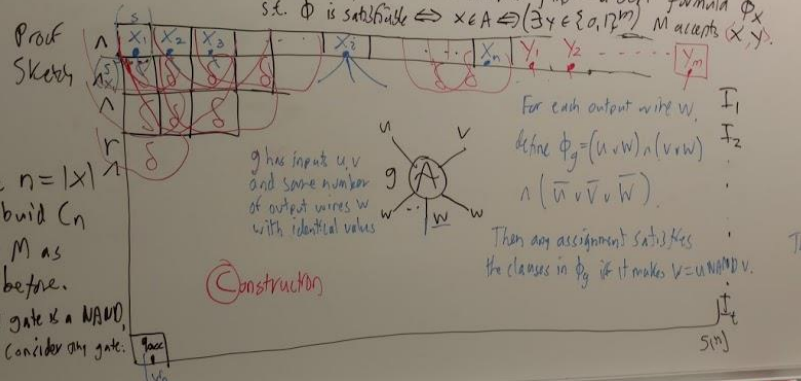 s.t. Φ is satisfiable ⟺ x∈A ⟺ (∃y∈{0,1}ᵐ) M accepts ⟨x,y⟩.
formula Φx
Proof
Sketch
s
∧ x₁ x₂ x₃ . . xᵢ . . . xₙ Y₁ Y₂ - - - - - Yₘ
δ δ δ δ δ δ
∧ δ δ δ
r
∧ δ
I₁
I₂
.
.
.
Iₜ
n = |x|
build Cₙ
M as
before.
gate is a NAND.
Consider any gate:
g has inputs u, v
and some number
of output wires w
with identical values
u v
g A
w ... w w
For each output wire w,
define Φg = (u ∨ w) ∧ (v ∨ w)
∧ (ū ∨ v̄ ∨ w̄).
Then any assignment satisfies
the clauses in Φg if it makes w = u NAND v.
Construction
qacc
S(n)